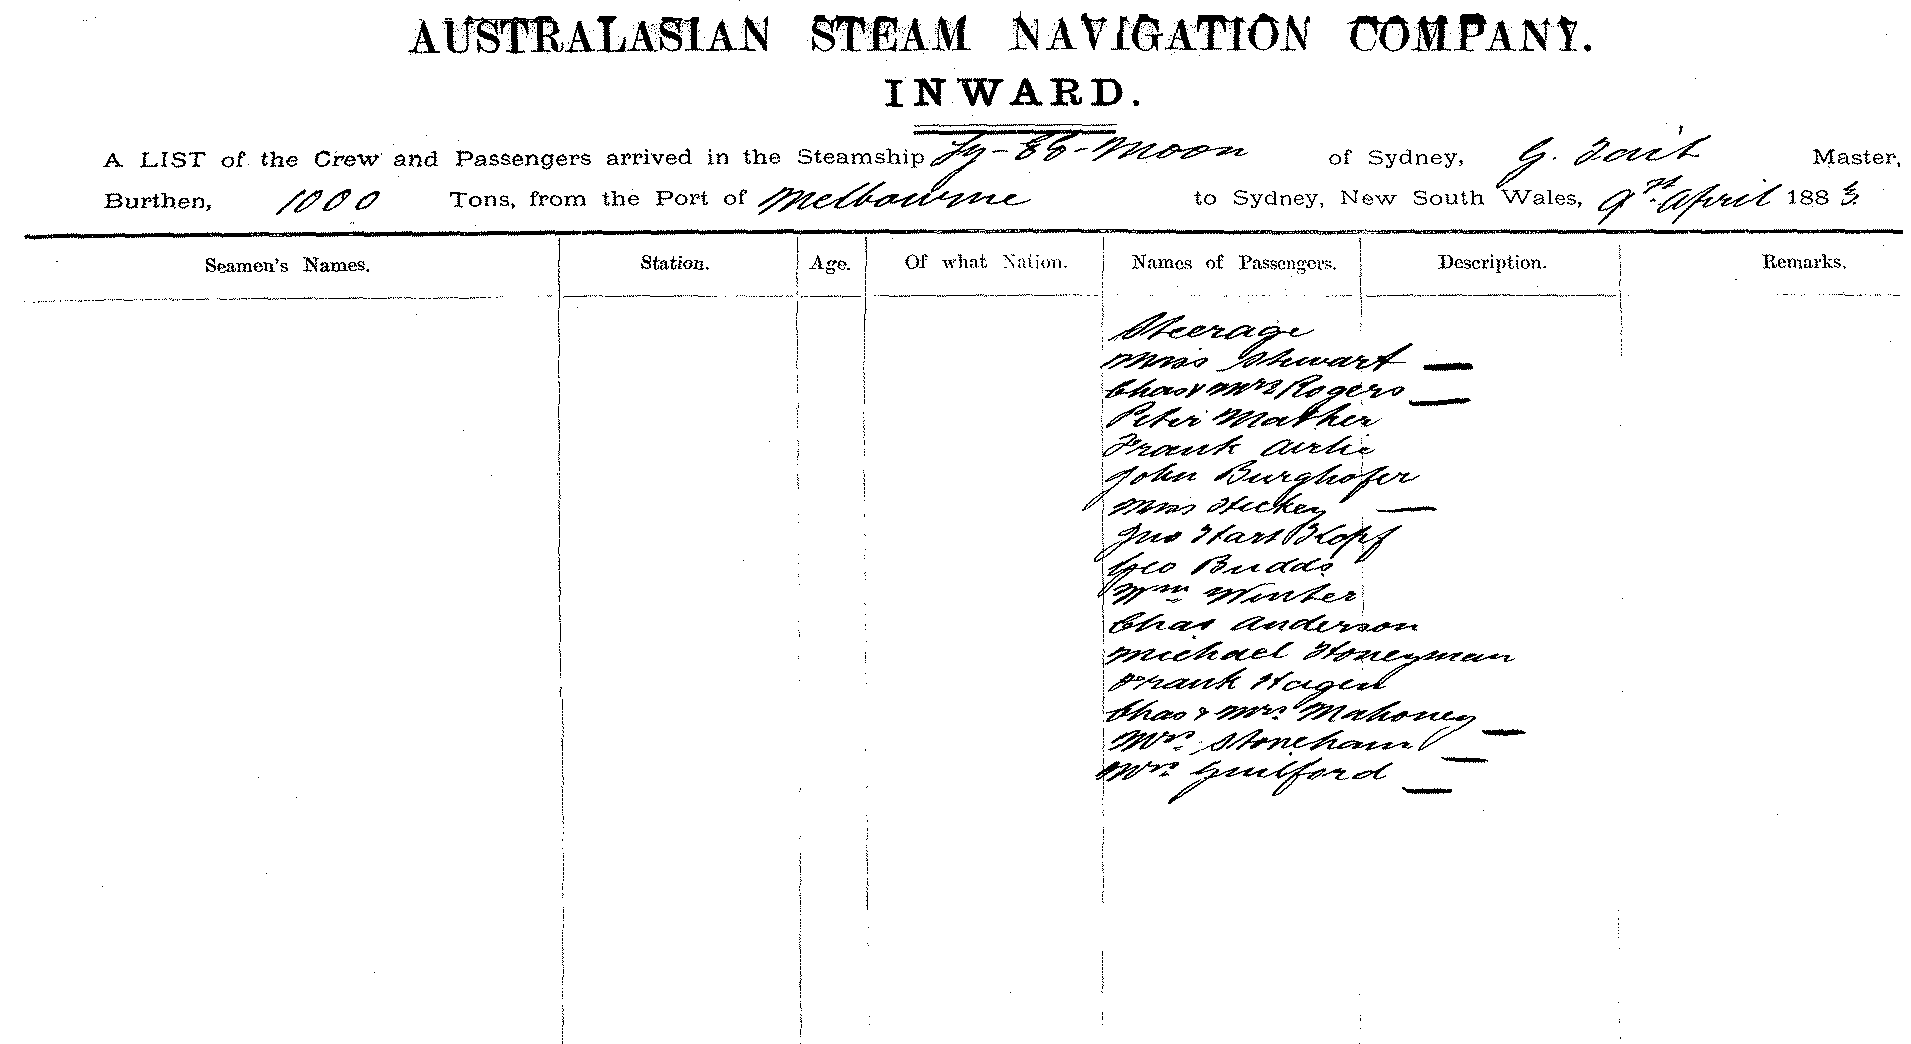 AUSTRALASIAN STEAM NAVIGATION COMPANY.
INWARD.
A LIST of the Crew and Passengers arrived in the Steamship Ly-Ee-Moon of Sydney, G. Tait Master,
Burthen, 1000 Tons, from the Port of Melbourne to Sydney, New South Wales, 9th April 1883
Seamen's Names. Station. Age. Of what Nation. Names of Passengers. Description. Remarks.
Steerage
Miss Stewart —
Chas & Mrs Rogers —
Peter Mather
Frank Airlie
John Burghofer
Miss Hickey —
Jno Hart Kopf
Geo Budds
Wm Winter
Chas Anderson
Michael Honeyman
Frank Hagen
Chas & Mrs Mahoney —
Mrs Stoneham —
Mrs Guilford —